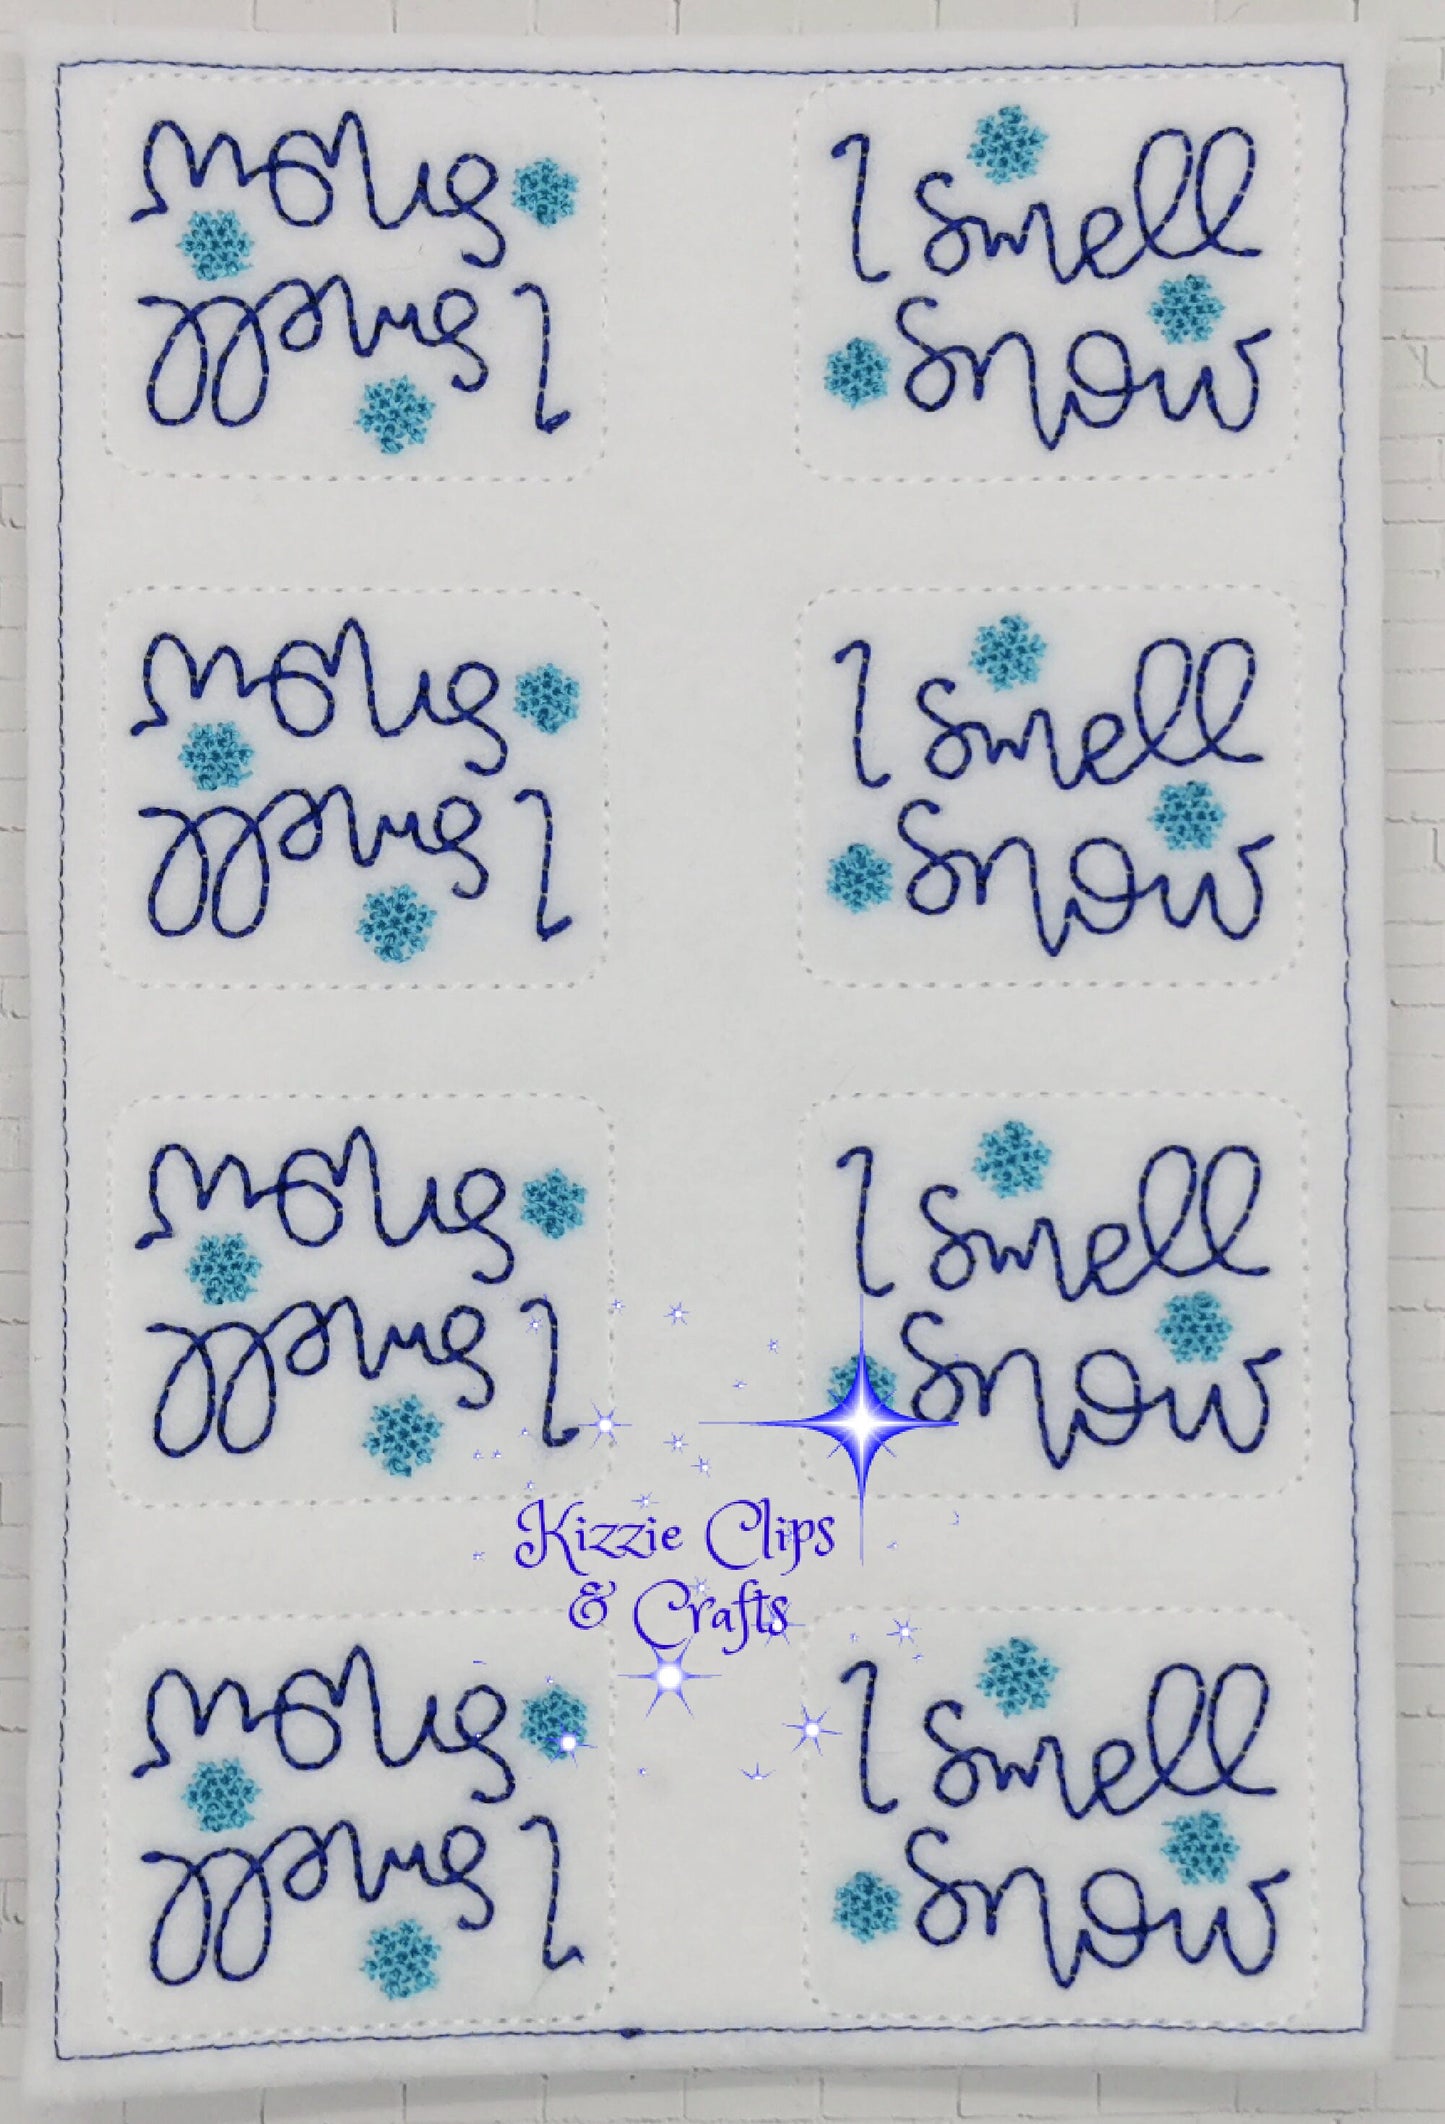 I smell
snow
I smell
snow
I smell
snow
I smell
snow
I smell
snow
I smell
snow
I smell
snow
I smell
snow
Kizzie Clips
& Crafts